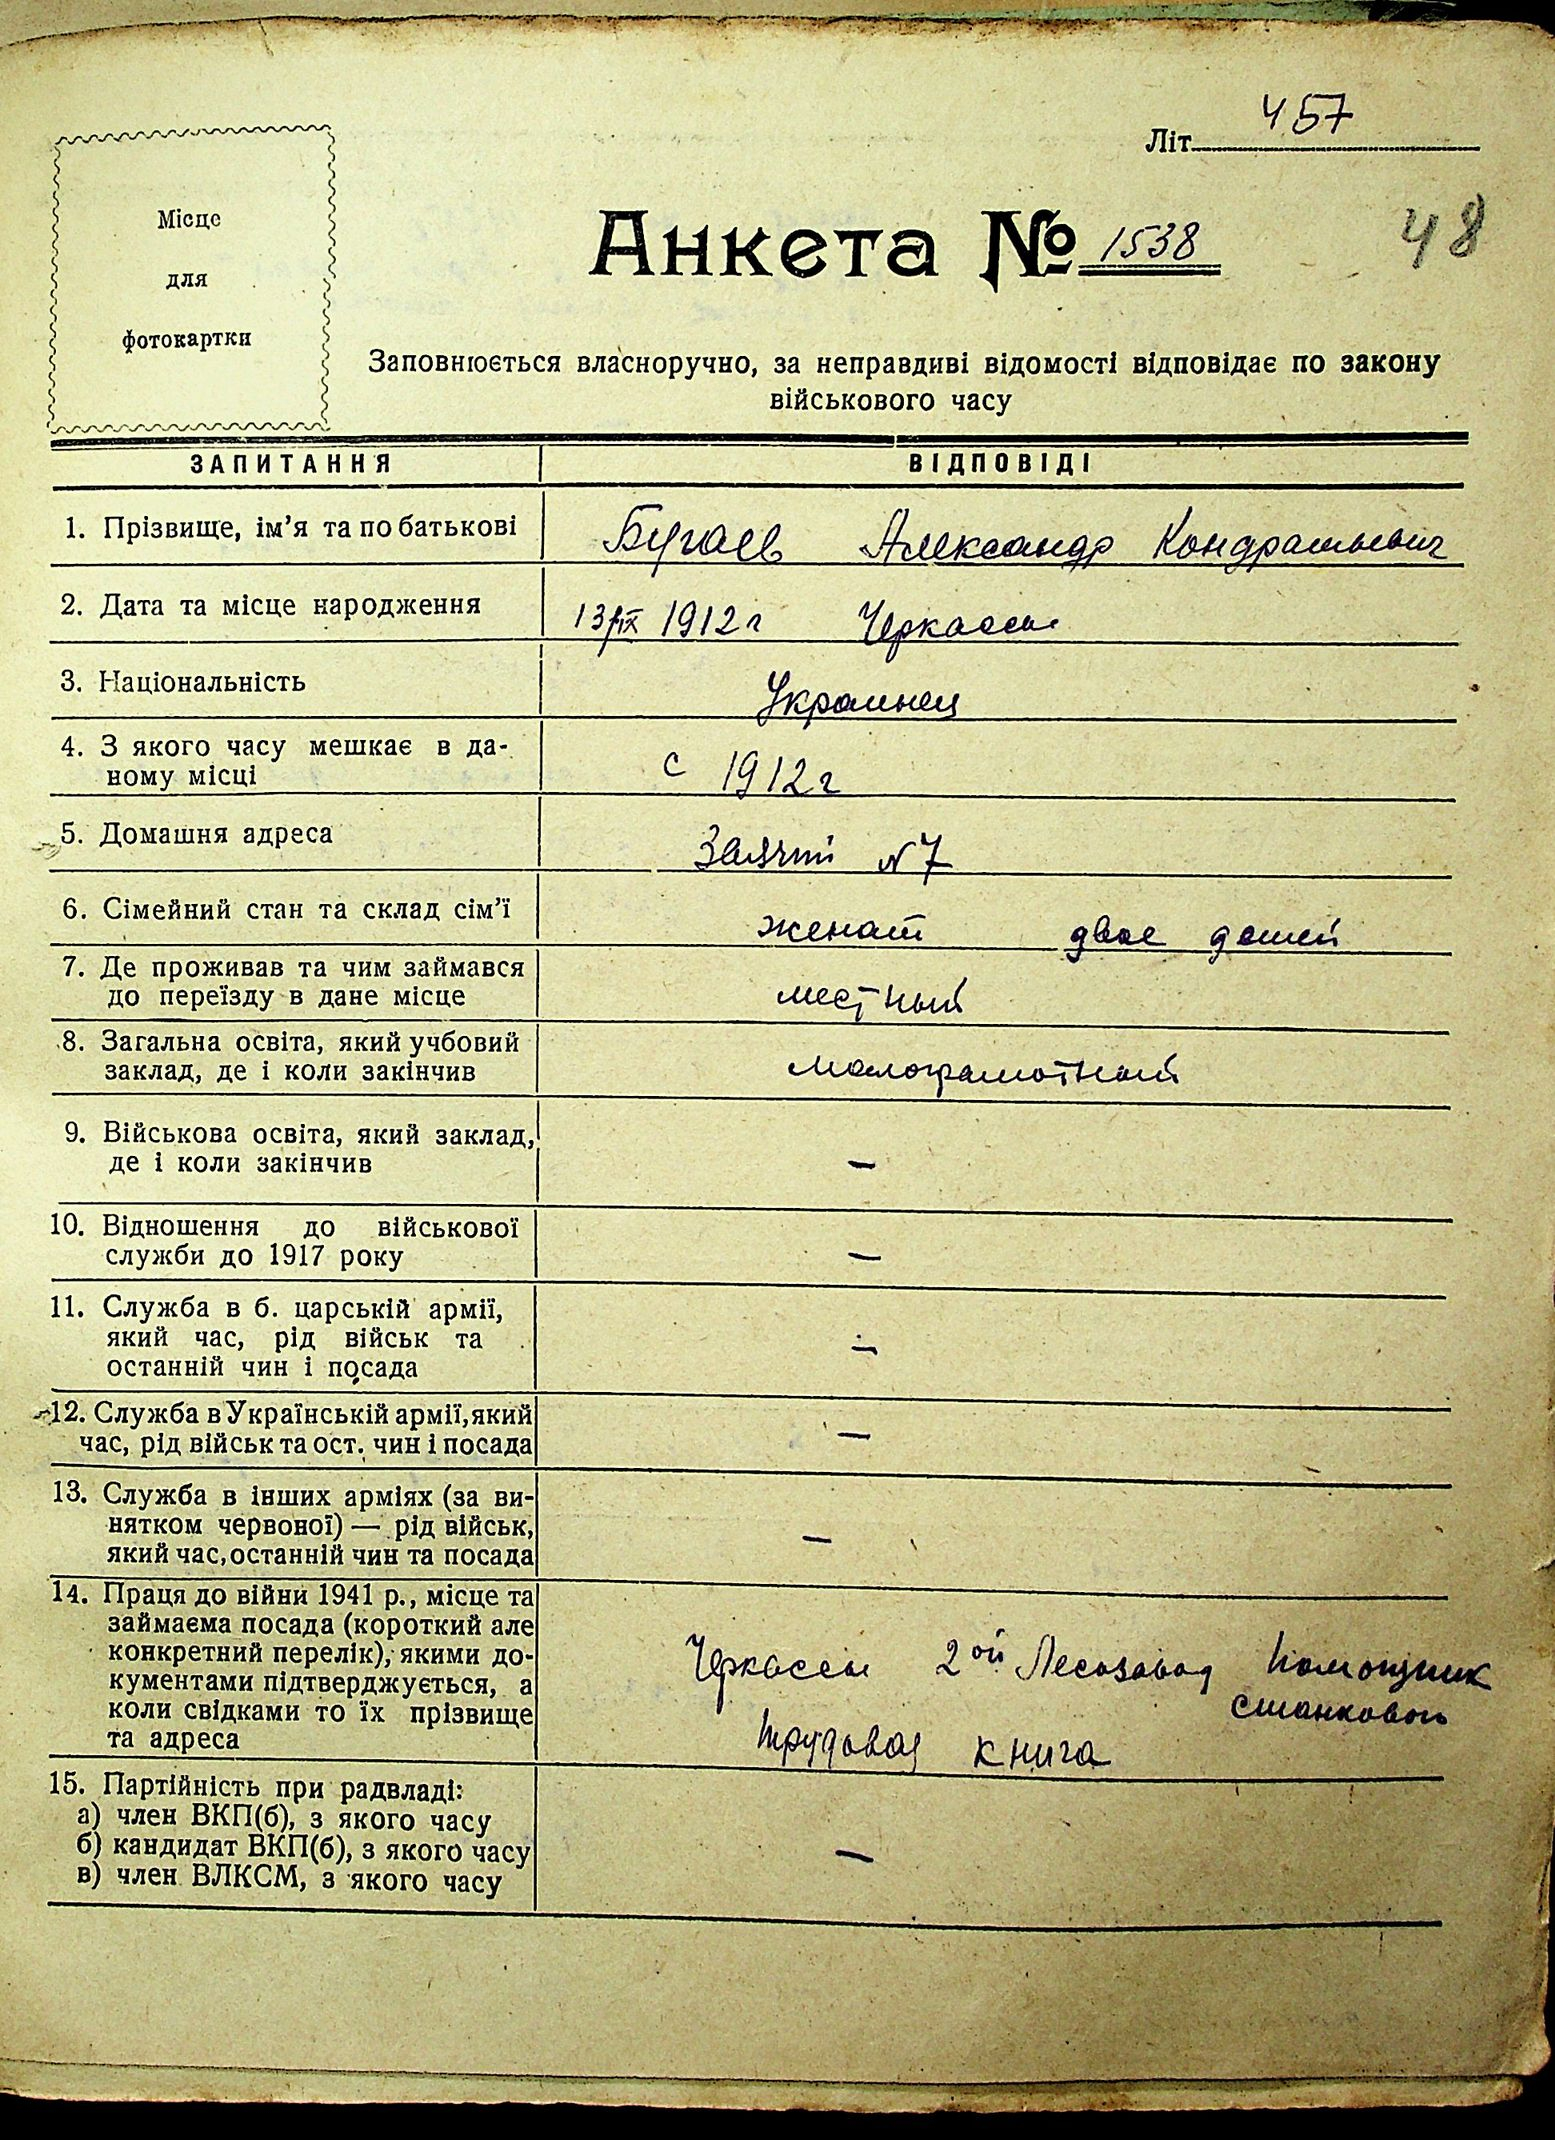 Літ. 457
48
Місце
для
фотокартки
Анкета № 1538
Заповнюється власноручно, за неправдиві відомості відповідає по закону
військового часу
ЗАПИТАННЯ ВІДПОВІДІ
1. Прізвище, ім’я та по батькові Бугаев Александр Кондратьевич
2. Дата та місце народження 13/IX 1912 г Черкассы
3. Національність Украинец
4. З якого часу мешкає в да- с 1912 г
ному місці
5. Домашня адреса Заячий №7
6. Сімейний стан та склад сім’ї женат двое детей
7. Де проживав та чим займався
до переїзду в дане місце местный
8. Загальна освіта, який учбовий
заклад, де і коли закінчив малограмотный
9. Військова освіта, який заклад,
де і коли закінчив —
10. Відношення до військової
служби до 1917 року —
11. Служба в б. царській армії,
який час, рід військ та —
останній чин і посада
12. Служба в Українській армії, який
час, рід військ та ост. чин і посада —
13. Служба в інших арміях (за ви-
нятком червоної) — рід військ,
який час, останній чин та посада —
14. Праця до війни 1941 р., місце та
займаєма посада (короткий але
конкретний перелік), якими до- Черкассы 2ой Лесозавод помощник
кументами підтверджується, а
коли свідками то їх прізвище станковой
та адреса трудовая книга
15. Партійність при радвладі:
а) член ВКП(б), з якого часу
б) кандидат ВКП(б), з якого часу —
в) член ВЛКСМ, з якого часу